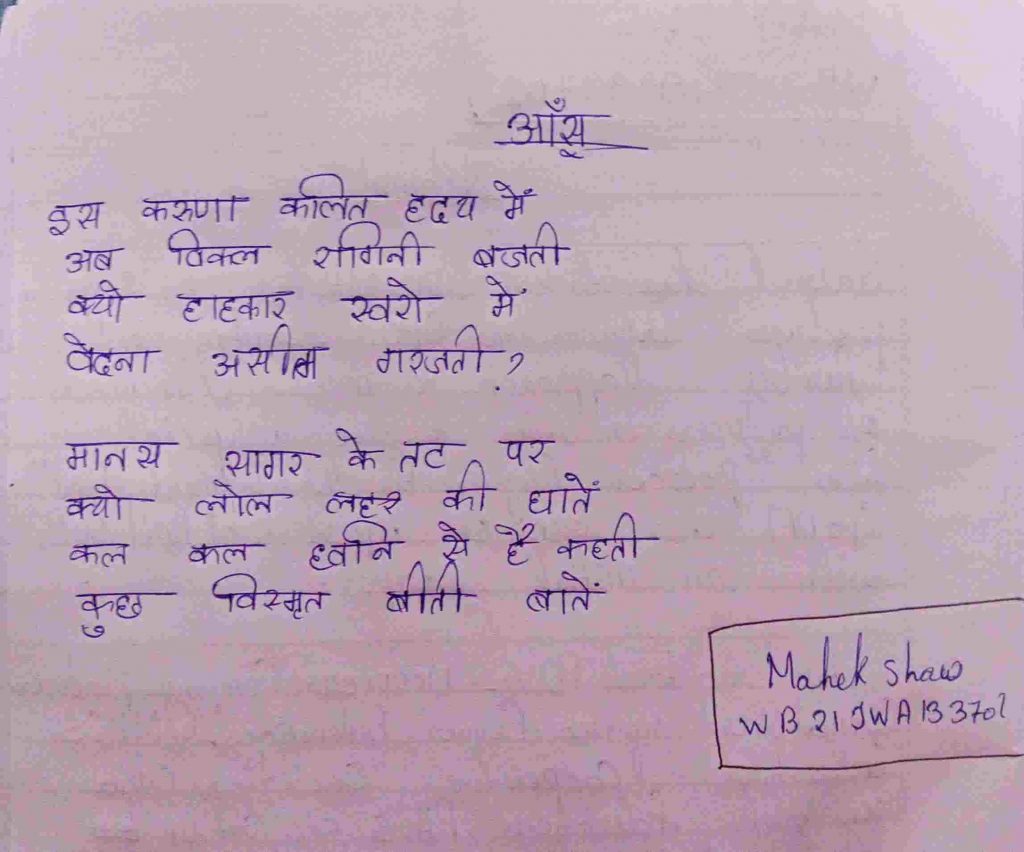 आँसू
इस करुणा कलित हृदय में
अब विकल रागिनी बजती
क्यो हाहकार स्वरो में
वेदना असीम गरजती?
मानस सागर के तट पर
क्यो लोल लहर की घातें
कल कल ध्वनि से हैं कहती
कुछ विस्मृत बीती बातें
Mahek Shaw
WB21SWA133702